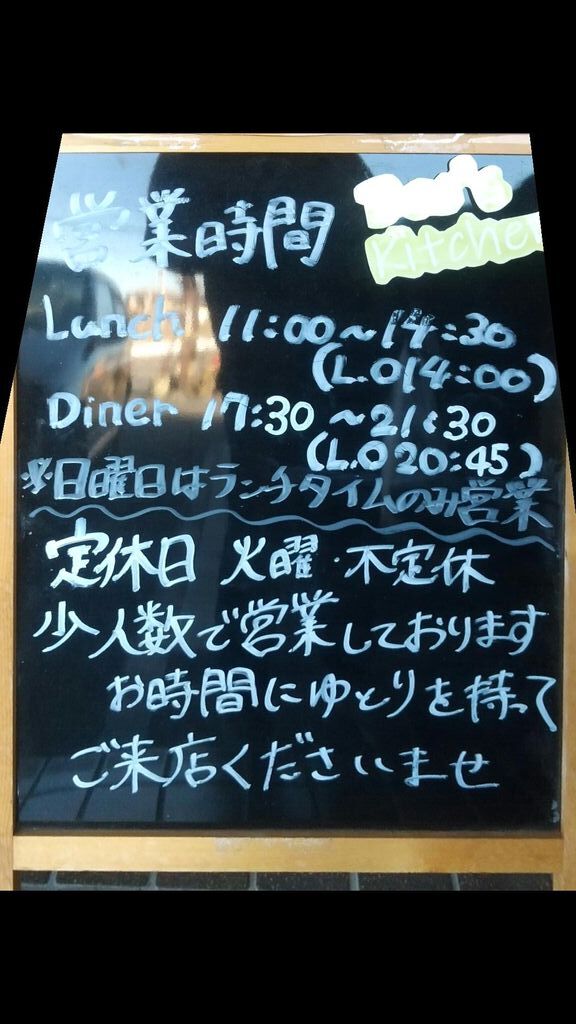 営業時間
Kitchen
Lunch 11:00~14:30
(L.O14:00)
Diner 17:30~21:30
(L.O20:45)
※日曜日はランチタイムのみ営業
定休日 火曜・不定休
少人数で営業しております
お時間にゆとりを持って
ご来店くださいませ